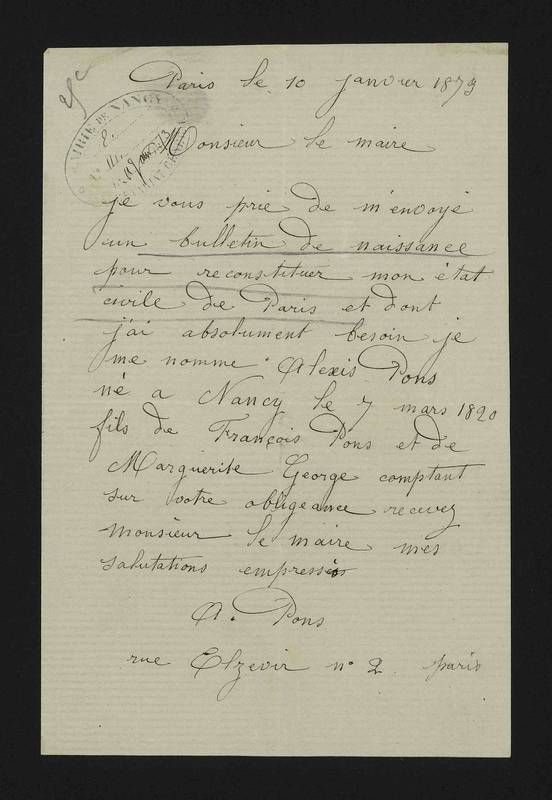 Paris le 10 janvier 1873
MAIRIE DE NANCY
Monsieur le maire
je vous prie de m'envoyé
un bulletin de naissance
pour reconstituer mon état
civile de Paris et dont
j'ai absolument besoin je
me nomme Alexis Pons
né a Nancy le 7 mars 1820
fils de François Pons et de
Marguerite George comptant
sur votre obligeance recevez
monsieur le maire mes
salutations empressés
A. Pons
rue Elzevir n° 2 paris